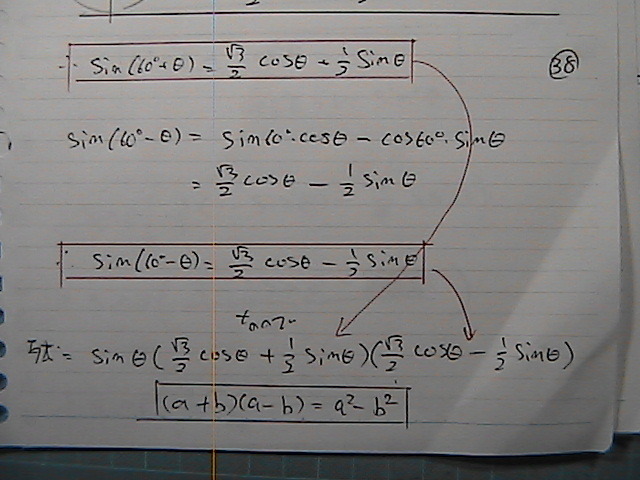 ∴ sin(60°+θ) = √3/2 cosθ + 1/2 sinθ
38
sin(60°-θ) = sin60°·cosθ - cos60°·sinθ
= √3/2 cosθ - 1/2 sinθ
∴ sin(60°-θ) = √3/2 cosθ - 1/2 sinθ
= sinθ(√3/2 cosθ + 1/2 sinθ)(√3/2 cosθ - 1/2 sinθ)
(a+b)(a-b) = a²-b²